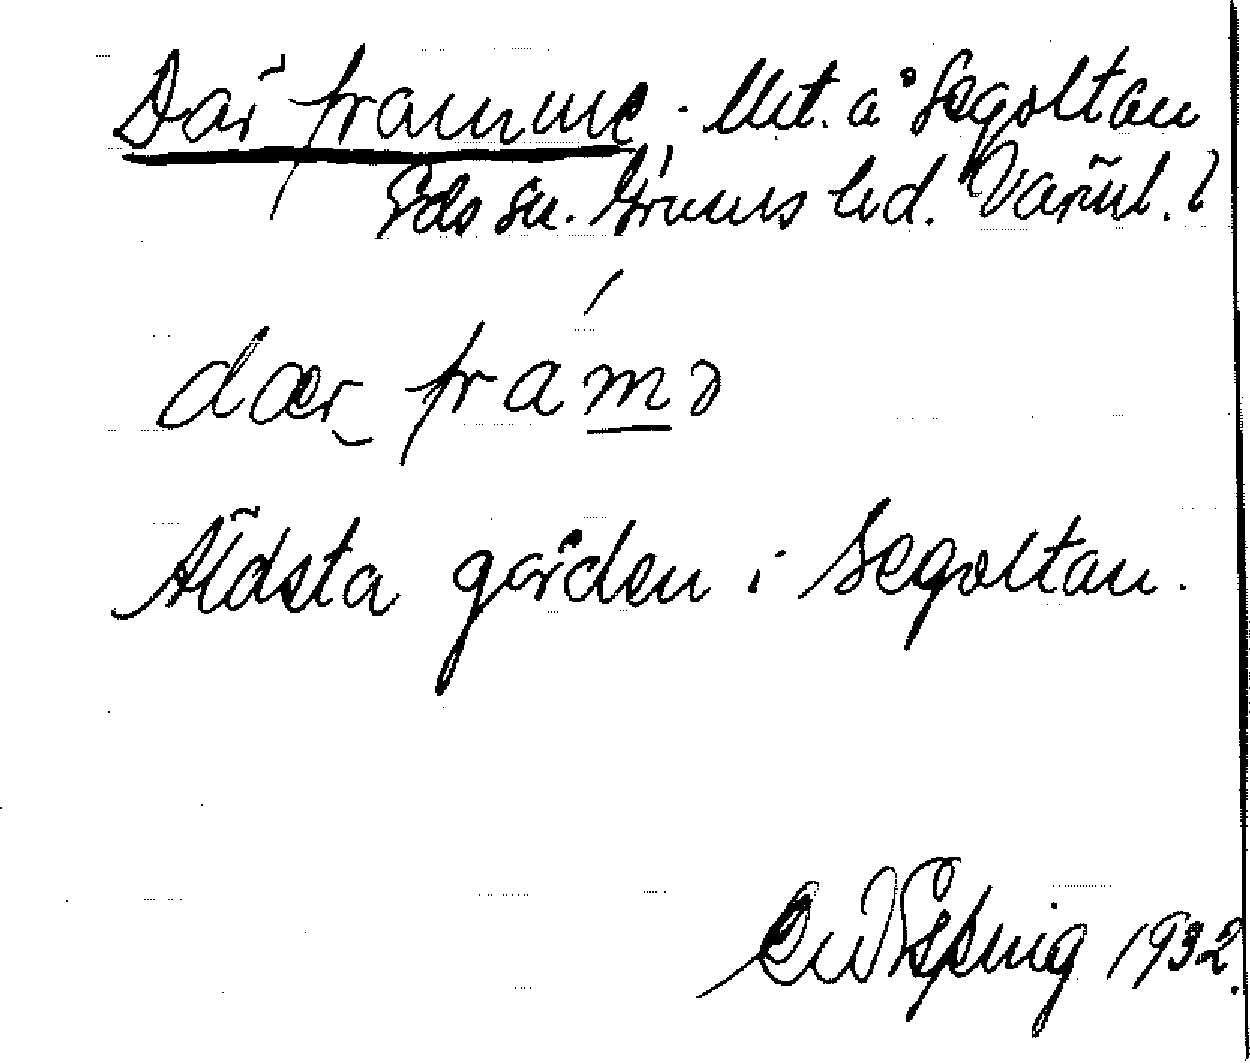 Där framme. Utt. å Segoltan
Eds sn. Grums hd. Värml. l
dær framə
Äldsta gården i Segoltan.
1932.